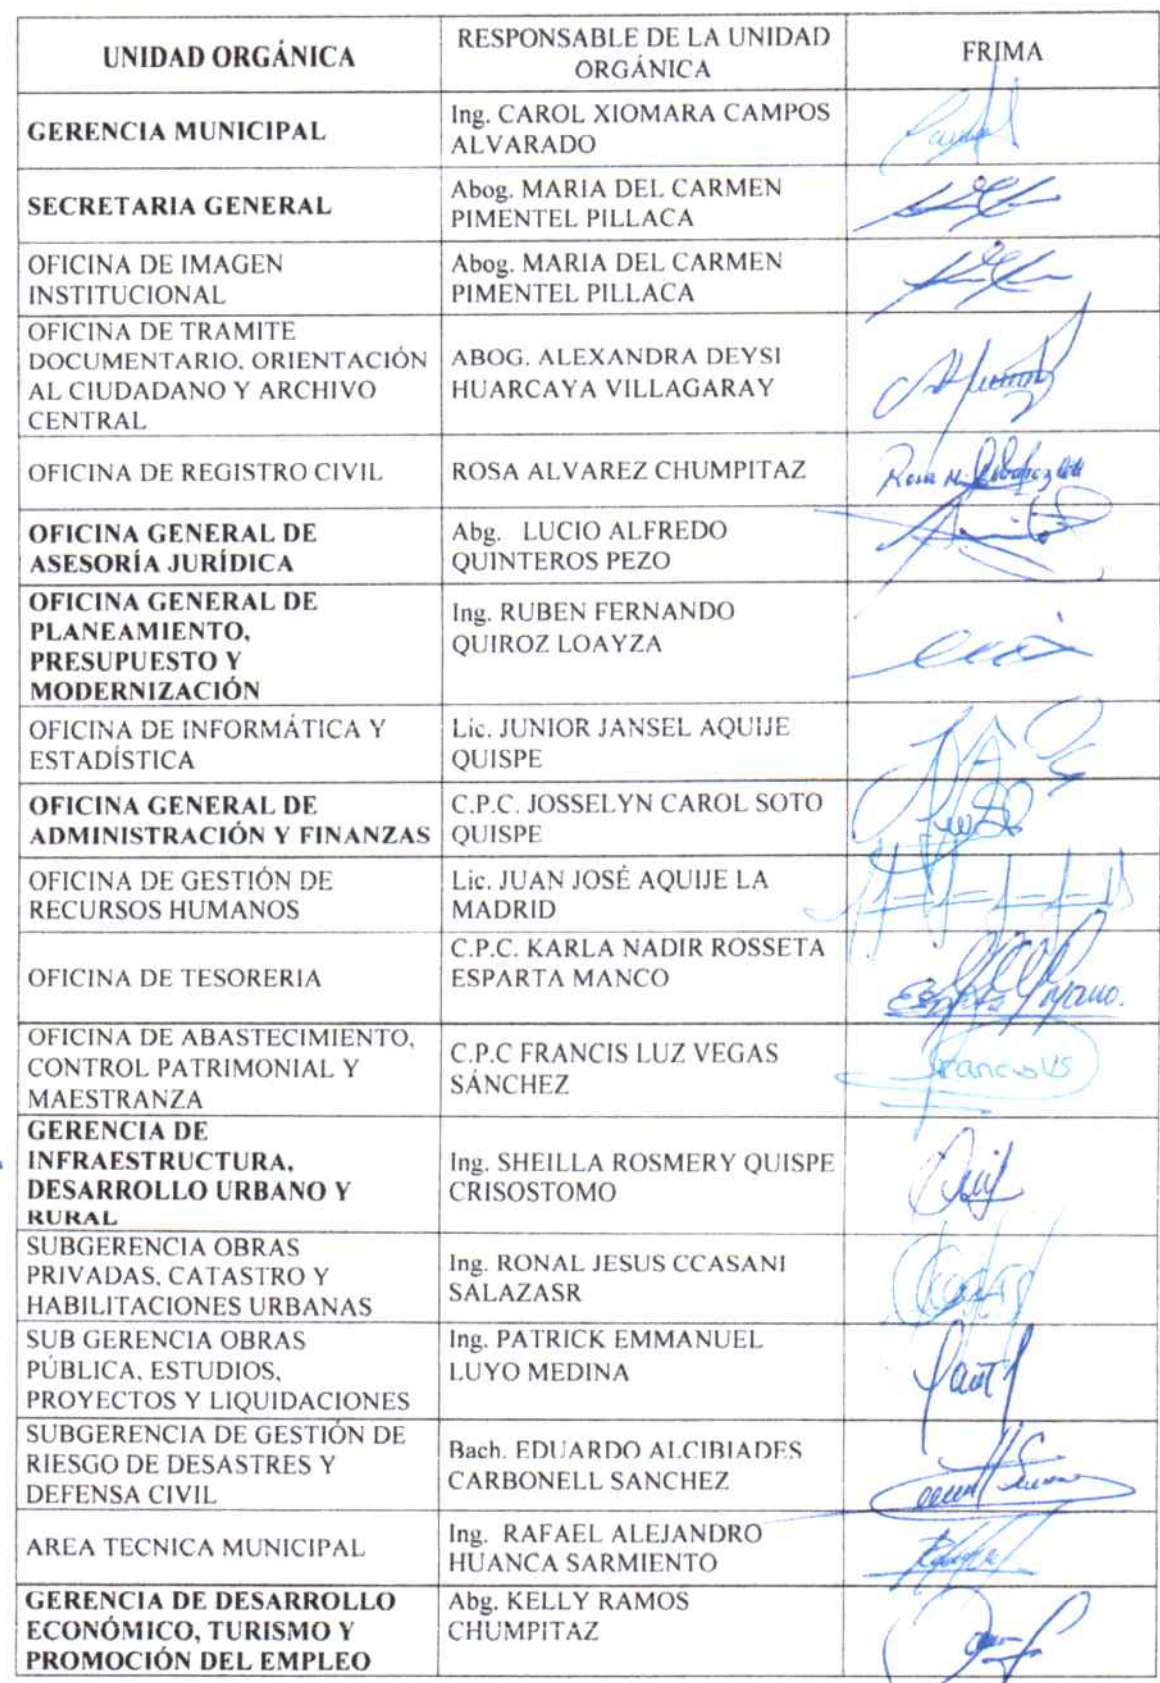 UNIDAD ORGÁNICA
RESPONSABLE DE LA UNIDAD
ORGÁNICA
FRIMA
GERENCIA MUNICIPAL
Ing. CAROL XIOMARA CAMPOS
ALVARADO
SECRETARIA GENERAL
Abog. MARIA DEL CARMEN
PIMENTEL PILLACA
OFICINA DE IMAGEN
INSTITUCIONAL
Abog. MARIA DEL CARMEN
PIMENTEL PILLACA
OFICINA DE TRAMITE
DOCUMENTARIO, ORIENTACIÓN
AL CIUDADANO Y ARCHIVO
CENTRAL
ABOG. ALEXANDRA DEYSI
HUARCAYA VILLAGARAY
OFICINA DE REGISTRO CIVIL
ROSA ALVAREZ CHUMPITAZ
OFICINA GENERAL DE
ASESORÍA JURÍDICA
Abg. LUCIO ALFREDO
QUINTEROS PEZO
OFICINA GENERAL DE
PLANEAMIENTO,
PRESUPUESTO Y
MODERNIZACIÓN
Ing. RUBEN FERNANDO
QUIROZ LOAYZA
OFICINA DE INFORMÁTICA Y
ESTADÍSTICA
Lic. JUNIOR JANSEL AQUIJE
QUISPE
OFICINA GENERAL DE
ADMINISTRACIÓN Y FINANZAS
C.P.C. JOSSELYN CAROL SOTO
QUISPE
OFICINA DE GESTIÓN DE
RECURSOS HUMANOS
Lic. JUAN JOSÉ AQUIJE LA
MADRID
OFICINA DE TESORERIA
C.P.C. KARLA NADIR ROSSETA
ESPARTA MANCO
OFICINA DE ABASTECIMIENTO,
CONTROL PATRIMONIAL Y
MAESTRANZA
C.P.C FRANCIS LUZ VEGAS
SÁNCHEZ
Francis VS
GERENCIA DE
INFRAESTRUCTURA,
DESARROLLO URBANO Y
RURAL
Ing. SHEILLA ROSMERY QUISPE
CRISOSTOMO
SUBGERENCIA OBRAS
PRIVADAS, CATASTRO Y
HABILITACIONES URBANAS
Ing. RONAL JESUS CCASANI
SALAZASR
SUB GERENCIA OBRAS
PÚBLICA, ESTUDIOS,
PROYECTOS Y LIQUIDACIONES
Ing. PATRICK EMMANUEL
LUYO MEDINA
SUBGERENCIA DE GESTIÓN DE
RIESGO DE DESASTRES Y
DEFENSA CIVIL
Bach. EDUARDO ALCIBIADES
CARBONELL SANCHEZ
AREA TECNICA MUNICIPAL
Ing. RAFAEL ALEJANDRO
HUANCA SARMIENTO
GERENCIA DE DESARROLLO
ECONÓMICO, TURISMO Y
PROMOCIÓN DEL EMPLEO
Abg. KELLY RAMOS
CHUMPITAZ